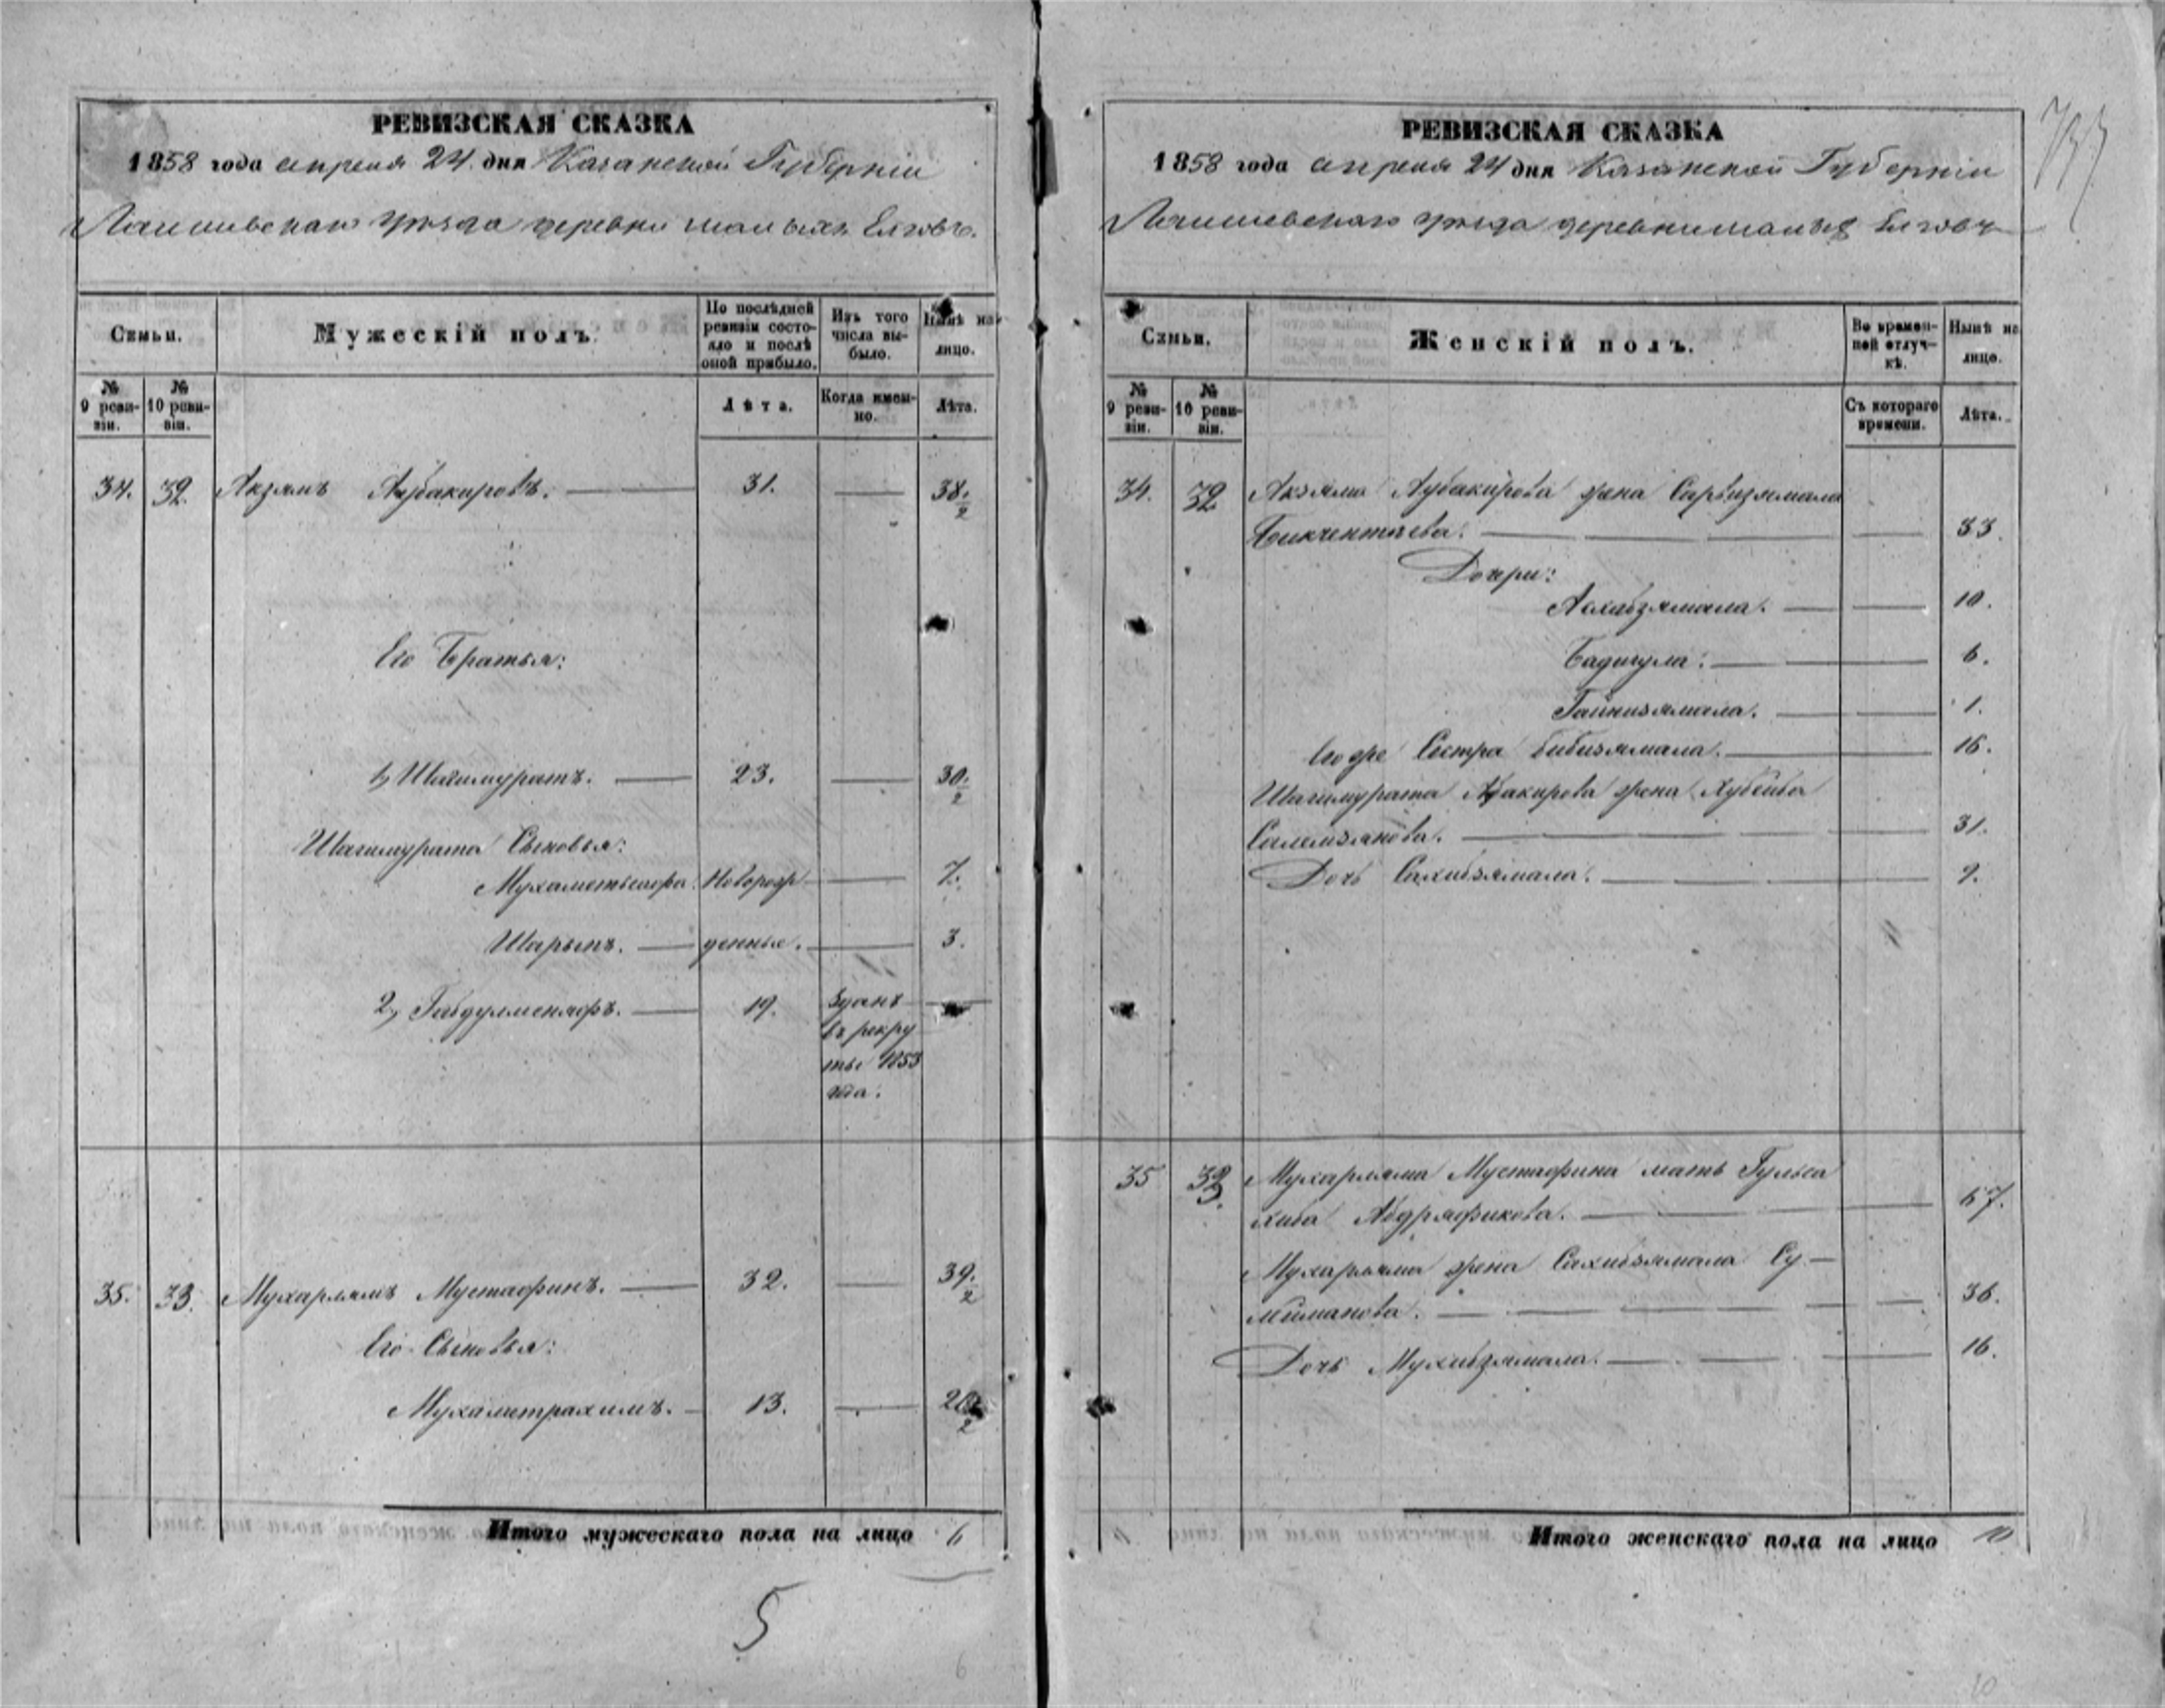 РЕВИЗСКАЯ СКАЗКА
1858 года апреля 24 дня Казанской Губерніи
Лаишевскаго уѣзда деревни малыхъ Елговъ.
Семьи.
Мужескій полъ.
По послѣдней ревизіи состояло и послѣ оной прибыло.
Изъ того числа выбыло.
Нынѣ на лицо.
№ 9 ревизіи.
№ 10 ревизіи.
Лѣта.
Когда именно.
Лѣта.
34. 32. Акзямъ Аубакировъ. 31. 38. 2
Его Братья:
1, Шагимуратъ. 23. 30. 2
Шагимурата Сыновья:
Новорож 7.
Шарыпъ. денные. 3.
2, Габдулменафъ. 19. Зданъ
въ рекру
ты 1853
года.
35. 33. Мухарлямъ Мустафинъ. 32. 39. 2
Его Сыновья:
Мухаметрахимъ. 13. 20 2
Итого мужескаго пола на лицо 6
5
6
РЕВИЗСКАЯ СКАЗКА
1858 года апреля 24 дня Казанской Губерніи
Лаишевскаго уѣзда деревни малыхъ Елговъ
Семьи.
Женскій полъ.
Во временной отлучкѣ.
Нынѣ на лицо.
№ 9 ревизіи.
№ 10 ревизіи.
Съ котораго времени.
Лѣта.
34. 32 Акзяма Аубакирова жена Сарвизямала
Бикчентаева. 33.
Дочери:
10.
Бадигула: 6.
Гайнизямала. 1.
Его же Сестра Бибизямала. 16.
Шагимурата Абакирова жена Хубейба
Салемзянова. 31.
Дочь Сахибзямала. 9.
35 33. Мухарляма Мустафина мать Гульса
хиба Абдряфикова. 67.
Мухарляма жена Сахибзямала Су-
лейманова. 36.
Дочь Мухибзямала. 16.
Итого женскаго пола на лицо 10
10